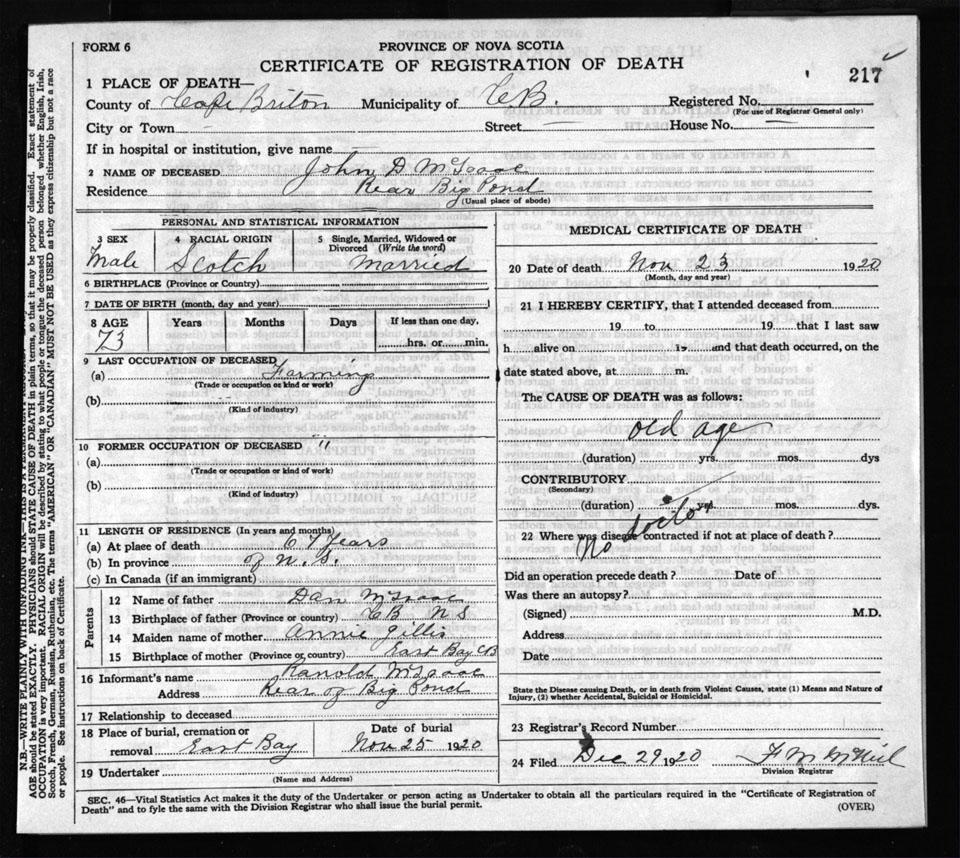 FORM 6
PROVINCE OF NOVA SCOTIA
CERTIFICATE OF REGISTRATION OF DEATH
217
1 PLACE OF DEATH—
County of Cape Briton Municipality of C.B. Registered No.
(For use of Registrar General only)
City or Town Street House No.
If in hospital or institution, give name
2 NAME OF DECEASED John D McIsaac
Residence Rear Big Pond
(Usual place of abode)
PERSONAL AND STATISTICAL INFORMATION
3 SEX 4 RACIAL ORIGIN 5 Single, Married, Widowed or Divorced (Write the word)
Male Scotch Married
6 BIRTHPLACE (Province or Country)
7 DATE OF BIRTH (month, day and year)
8 AGE Years Months Days If less than one day,
73 hrs. or min.
9 LAST OCCUPATION OF DECEASED
(a) Farming
(Trade or occupation or kind or work)
(b)
(Kind of industry)
10 FORMER OCCUPATION OF DECEASED "
(a)
(Trade or occupation or kind of work)
(b)
(Kind of industry)
11 LENGTH OF RESIDENCE (In years and months)
(a) At place of death 67 Years
(b) In province of N.S.
(c) In Canada (if an immigrant)
Parents
12 Name of father Dan McIsaac
13 Birthplace of father (Province or country) CB NS
14 Maiden name of mother Annie Gillis
15 Birthplace of mother (Province or country) East Bay CB
16 Informant's name Ranold McIsaac
Address Rear of Big Pond
17 Relationship to deceased
18 Place of burial, cremation or removal East Bay
Date of burial
Nov 25 1920
19 Undertaker
(Name and Address)
MEDICAL CERTIFICATE OF DEATH
20 Date of death Nov 23 1920
(Month, day and year)
21 I HEREBY CERTIFY, that I attended deceased from
19 to 19 that I last saw
h alive on 19 and that death occurred, on the
date stated above, at m.
The CAUSE OF DEATH was as follows:
Old age
(duration) yrs. mos. dys
CONTRIBUTORY
(Secondary)
(duration) yrs. mos. dys.
22 Where was disease contracted if not at place of death?
No doctor
Did an operation precede death? Date of
Was there an autopsy?
(Signed) M.D.
Address
Date
State the Disease causing Death, or in death from Violent Causes, state (1) Means and Nature of
Injury, (2) whether Accidental, Suicidal or Homicidal.
23 Registrar's Record Number
24 Filed Dec 29 1920 F M McNeil
Division Registrar
SEC. 46—Vital Statistics Act makes it the duty of the Undertaker or person acting as Undertaker to obtain all the particulars required in the "Certificate of Registration of
Death" and to fyle the same with the Division Registrar who shall issue the burial permit.
(OVER)
N.B.—WRITE PLAINLY WITH UNFADING INK—THIS IS A PERMANENT
AGE should be stated EXACTLY. PHYSICIANS should STATE CAUSE OF DEATH in plain terms, so that it may be properly classified. Exact statement of
OCCUPATION is very important. RACIAL ORIGIN will be described by stating to what people or tongue the deceased person belonged whether English, Irish,
Scotch, French, German, Russian, Ruthenian, etc. The terms "AMERICAN" OR "CANADIAN" MUST NOT BE USED as they express citizenship but not a race
or people. See instructions on back of Certificate.